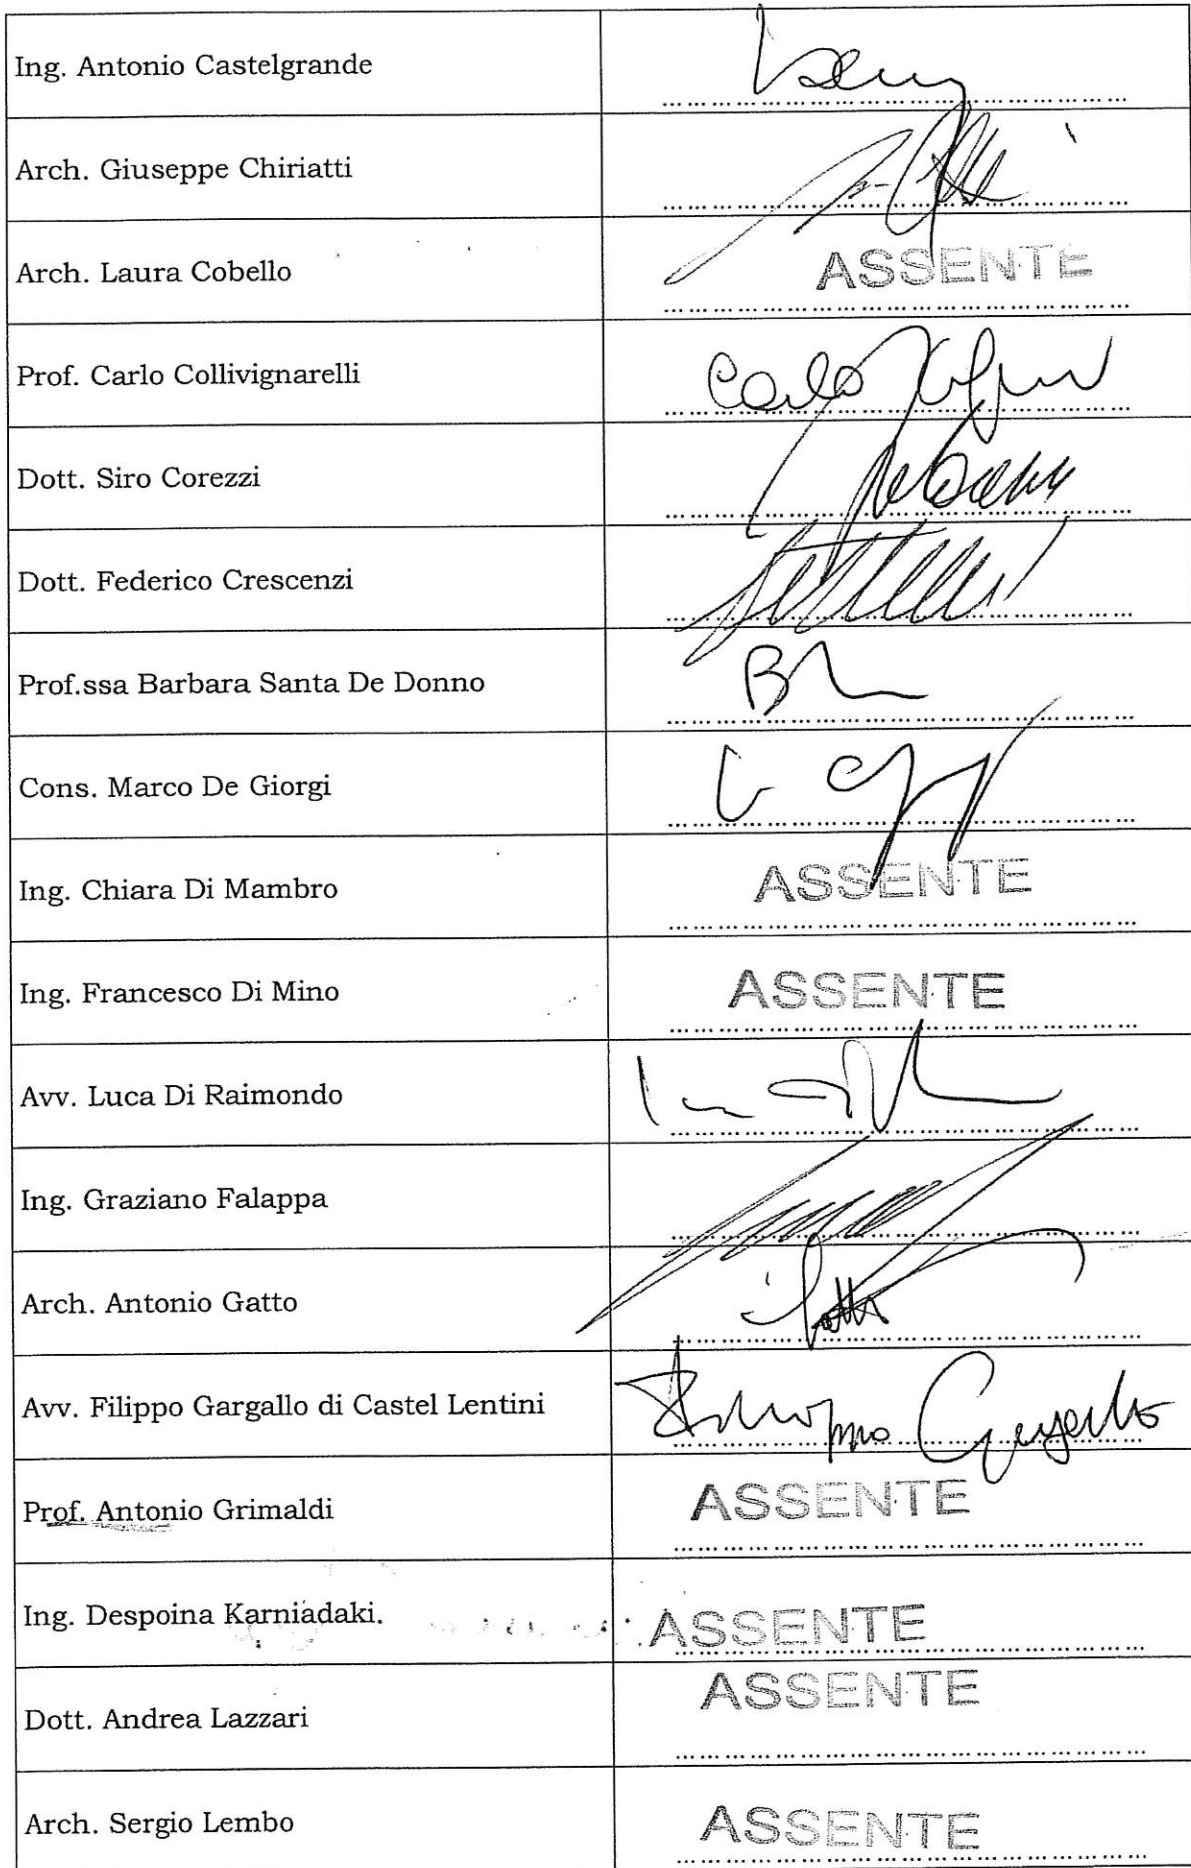 Ing. Antonio Castelgrande
Arch. Giuseppe Chiriatti
Arch. Laura Cobello ASSENTE
Prof. Carlo Collivignarelli Carlo
Dott. Siro Corezzi
Dott. Federico Crescenzi
Prof.ssa Barbara Santa De Donno
Cons. Marco De Giorgi
Ing. Chiara Di Mambro ASSENTE
Ing. Francesco Di Mino ASSENTE
Avv. Luca Di Raimondo
Ing. Graziano Falappa
Arch. Antonio Gatto
Avv. Filippo Gargallo di Castel Lentini Filippo Gargallo
Prof. Antonio Grimaldi ASSENTE
Ing. Despoina Karniadaki. ASSENTE
Dott. Andrea Lazzari ASSENTE
Arch. Sergio Lembo ASSENTE